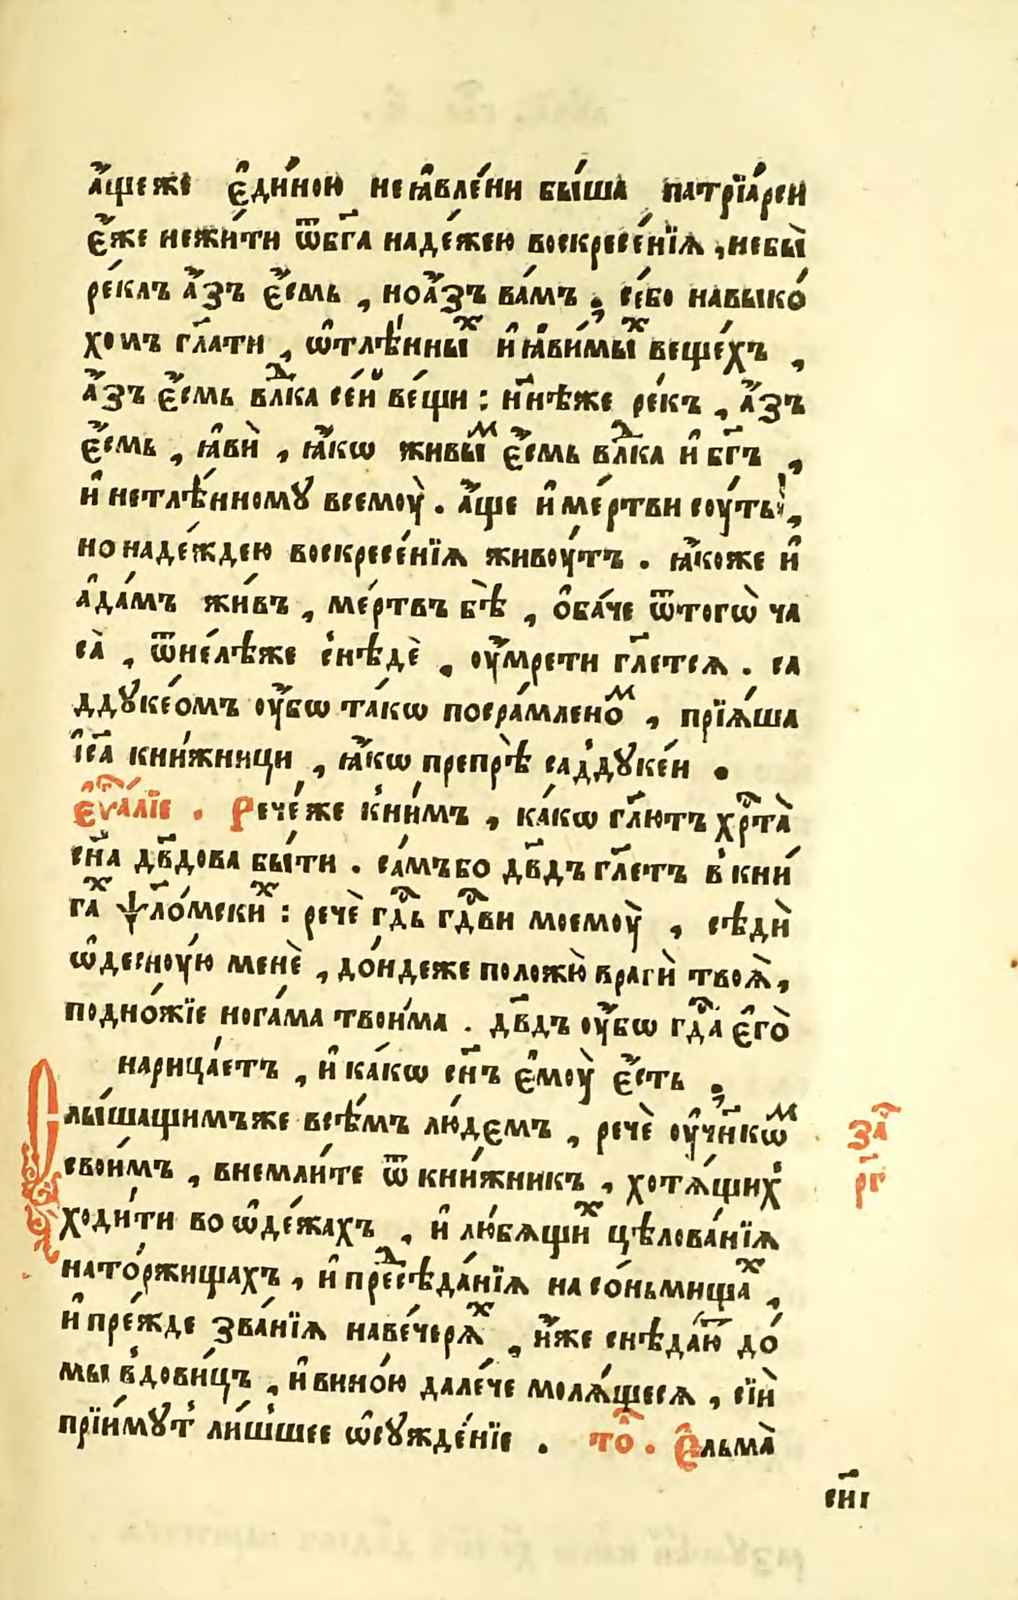 а҆́щеже є҆ди́ною неꙗ҆вле́ни бы́ша патрїа́рси
є҆́же нежи́ти ѿбг҃а наде́жею воскресе́нїѧ , небы̀
ре́клъ а҆́зъ є҆́смь , ноа҆́зъ ва́мъ . се́бо навыко́
хомъ гл҃ати , ѡ҆тлѣ́нныⷯ и҆ꙗ҆ви́мыⷯ веще́хъ ,
а҆́зъ є҆́смь влⷣка се́й ве́щи : н҃нѣже ре́къ , а҆́зъ
є҆́смь , ꙗ҆вѝ , ꙗ҆́кѡ живы́ⷨ є҆́смь влⷣка и҆ бг҃ъ ,
и҆ нетлѣ́нномꙋ всемоу̀ . а҆́ще и҆ ме́ртви соу́ть ,
но наде́ждею воскресе́нїѧ живоу́тъ . ꙗ҆́коже и҆
а҆да́мъ жи́въ , ме́ртвъ бѣ̀ , ѻ҆ба́че ѿтогѡ̀ ча
са̀ , ѿне́лѣже снѣдѐ , оу҆́мрети гл҃етсѧ . са
ддꙋке́омъ оу҆́бѡ та́кѡ посра́мленоⷨ , прїѧ́ша
і҆с҃а кни́жници , ꙗ҆́кѡ препрѣ̀ садд́ꙋкеи .
є҆ѵⷢ҇а́лїе . Рече́же кни́мъ , ка́кѡ гл҃ютъ хрⷭ҇та̀
сн҃а дв҃дова бы́ти . са́мъбо дв҃дъ гл҃етъ в̾ кни́
гаⷯ ѱл҃о́мскиⷯ : речѐ гдⷭ҇ь гдⷭ҇ви моемоу̀ , сѣдѝ
ѡ҆десноу́ю менѐ , до́ндеже положю̀ врагѝ твоѧ̀ ,
подно́жїе нога́ма твои́ма . дв҃дъ оу҆́бѡ гдⷭ҇а є҆го̀
нарица́етъ , и҆ ка́кѡ сн҃ъ є҆моу̀ є҆́сть ,
Слы́шащимъже всѣ́мъ лю́демъ , речѐ оу҆чн҃кѡⷨ
свои́мъ , внемли́те ѿ кни́жникъ , хотѧ́щих̾
ходи́ти во ѡ҆де́жахъ , и҆ лю́бѧщиⷯ цѣлова́нїѧ
нато́ржищахъ , и҆ преⷣсѣда́нїѧ насо́ньмищаⷯ ,
и҆ пре́жде зва́нїѧ наве́черѧⷯ , и҆́же снѣда́юⷮ до́
мы в̾дови́цъ , и҆ вино́ю дале́че молѧ́щесѧ , сїѝ
прїи́мꙋт̾ ли́шшее ѡ҆сꙋжде́нїе . тоⷧ҇ . Е҆льма̀
заⷱ҇
рг҃
сн҃ı